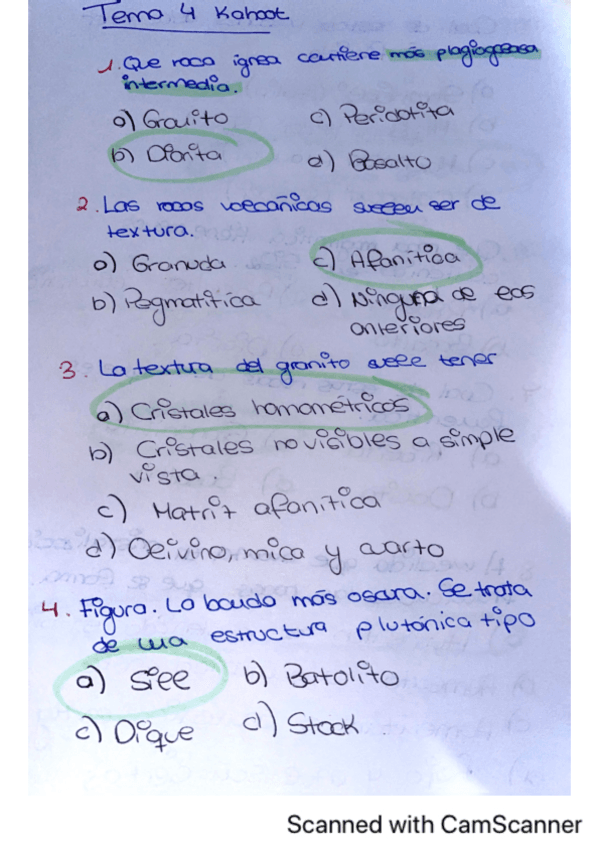 Tema 4 Kahoot
1. Que roca ígnea contiene más plagioglasa
intermedia.
a) Granito c) Peridotita
b) Diorita d) Basalto
2. Las rocas volcánicas suelen ser de
textura.
a) Granuda c) Afanítica
b) Pegmatítica d) Ninguna de las
anteriores
3. La textura del granito suele tener
a) Cristales homométricos
b) Cristales no visibles a simple
vista.
c) Matriz afanítica
d) Olivino, mica y cuarzo
4. Figura. La banda más oscura. Se trata
de una estructura plutónica tipo
a) Sill b) Batolito
c) Dique d) Stock
Scanned with CamScanner